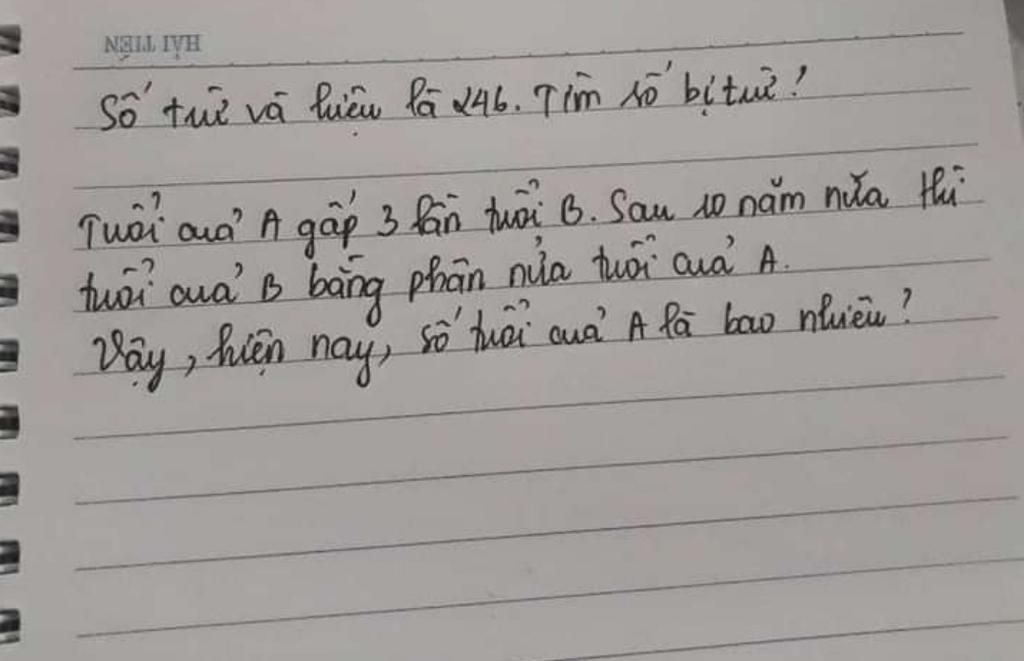 HẢI TIẾN
Số trừ và hiệu là 246. Tìm số bị trừ!
Tuổi của A gấp 3 lần tuổi B. Sau 10 năm nữa thì
tuổi của B bằng phân nửa tuổi của A.
Vậy, hiện nay, số tuổi của A là bao nhiêu?